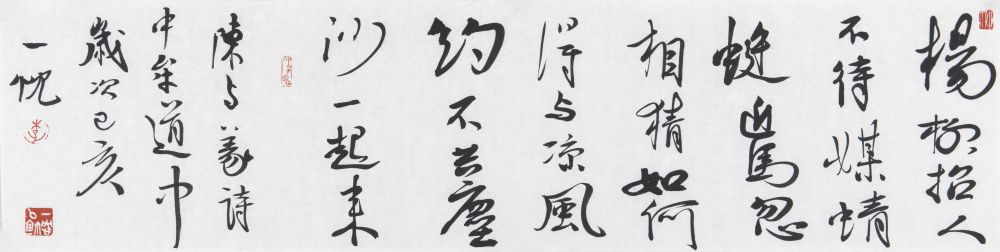 楊柳招人
不待媒蜻
蜓近馬忽
相猜如何
得与凉風
约不共塵
沙一起来
陳与義詩
中牟道中
歲次己亥
一忱
李